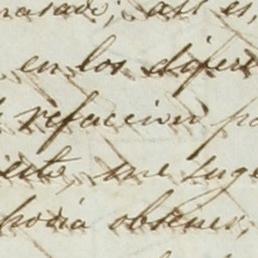 así es,
en los difere
refaccion pa
me suge
podia obtener,